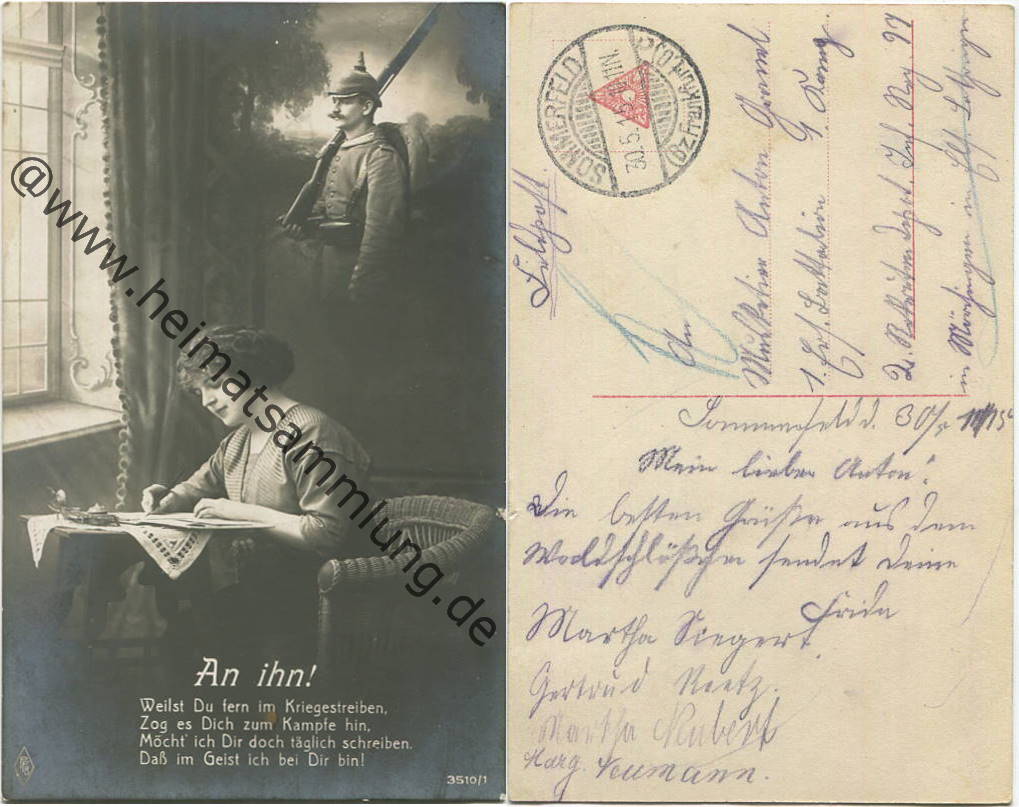 @www.heimatsammlung.de
An ihn!
Weilst Du fern im Kriegestreiben,
Zog es Dich zum Kampfe hin,
Möcht' ich Dir doch täglich schreiben.
Daß im Geist ich bei Dir bin!
3510/1
SOMMERFELD
30.5.15.
(Bz. Frankfurt, O.)
Feldpost.
An
Musketier Anton
1. Ers. Battalion
2. Rekruten Depot. Inf. Rg. 97
in Mörchingen in Els. Lothringen
Sommerfeld d. 30/5
Mein lieber Anton!
Die besten Grüße aus dem
Waldschlößchen sendet Deine
Frida
Martha Siegert.
Gertrud
Martha
Marg. Neumann.